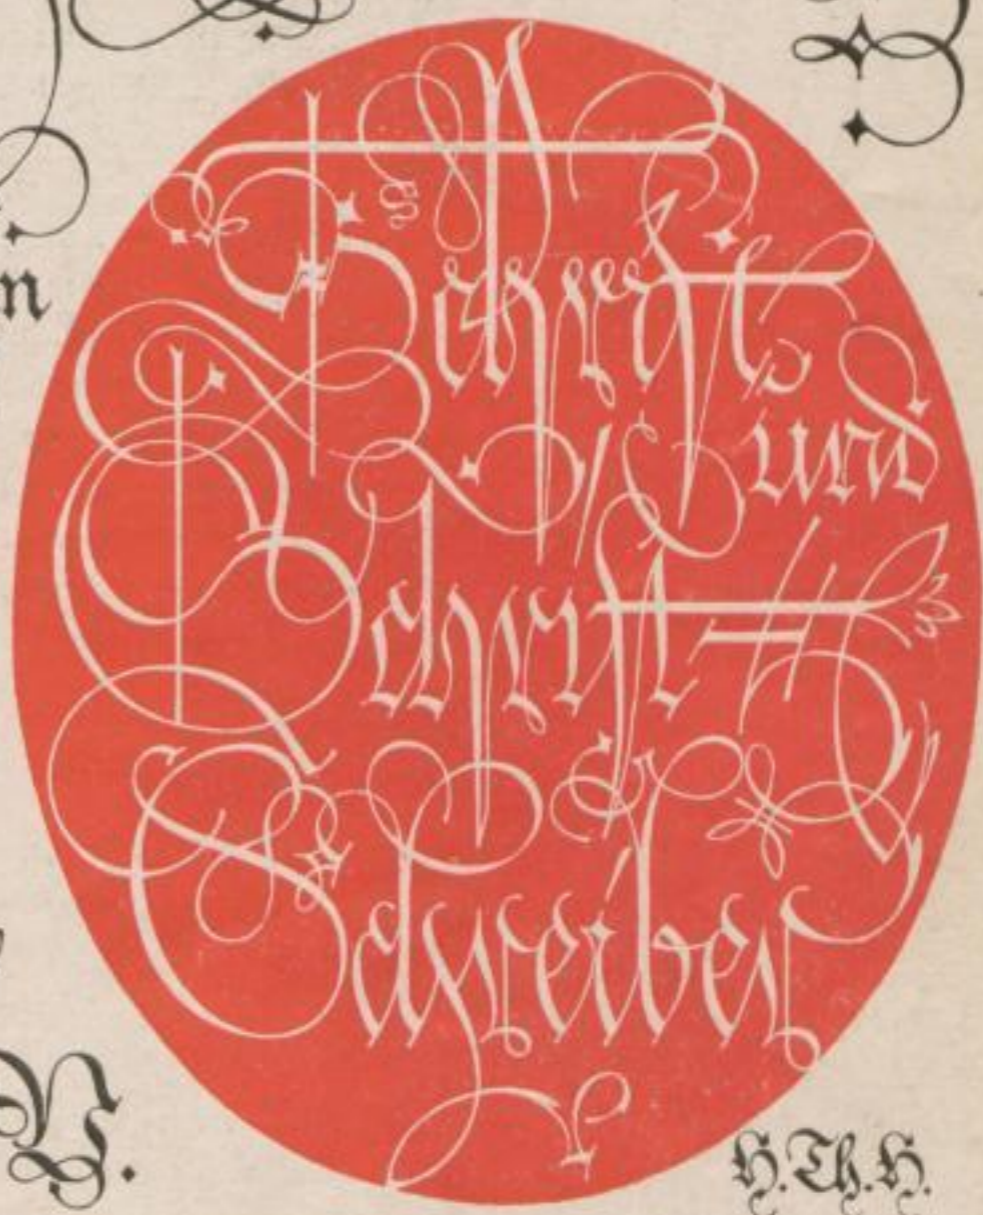 n
Schrift
und
Schrift=
Schreiber
V.
H.Th.H.